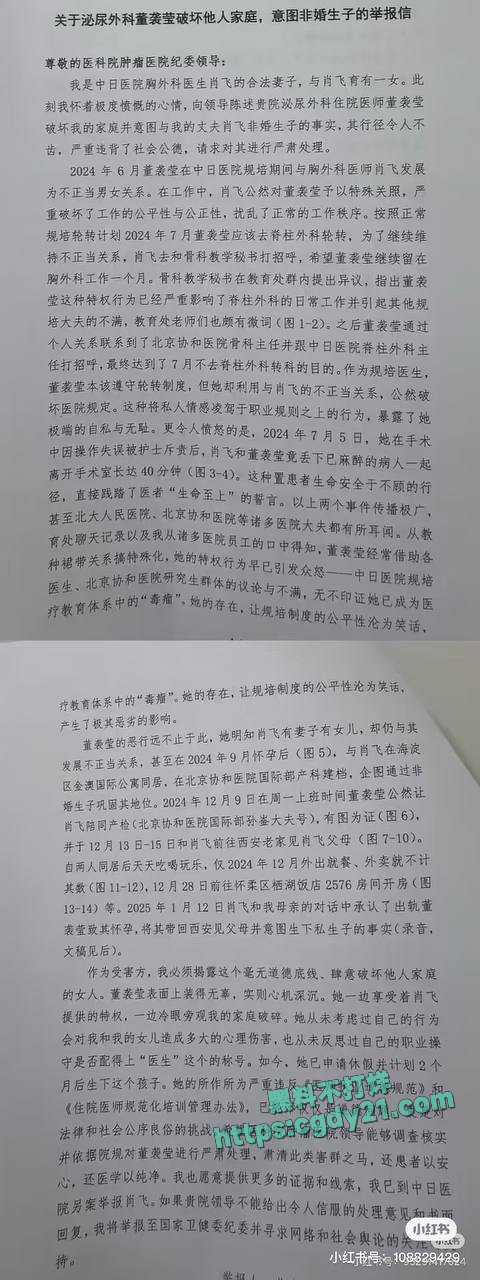 关于泌尿外科董袭莹破坏他人家庭，意图非婚生子的举报信
尊敬的医科院肿瘤医院纪委领导：
我是中日医院胸外科医生肖飞的合法妻子，与肖飞育有一女。此
刻我怀着极度愤慨的心情，向领导陈述贵院泌尿外科住院医师董袭莹
破坏我的家庭并意图与我的丈夫肖飞非婚生子的事实，其行径令人不
齿，严重违背了社会公德，请求对其进行严肃处理。
2024 年 6 月董袭莹在中日医院规培期间与胸外科医师肖飞发展
为不正当男女关系。在工作中，肖飞公然对董袭莹予以特殊关照，严
重破坏了工作的公平性与公正性，扰乱了正常的工作秩序。按照正常
规培轮转计划 2024 年 7 月董袭莹应该去脊柱外科轮转，为了继续维
持不正当关系，肖飞去和骨科教学秘书打招呼，希望董袭莹继续留在
胸外科工作一个月。骨科教学秘书在教育处群内提出异议，指出董袭
莹这种特权行为已经严重影响了脊柱外科的日常工作并引起其他规
培大夫的不满，教育处老师们也颇有微词（图 1-2）。之后董袭莹通过
个人关系联系到了北京协和医院骨科主任并跟中日医院脊柱外科主
任打招呼，最终达到了 7 月不去脊柱外科转科的目的。作为规培医生，
董袭莹本该遵守轮转制度，但她却利用与肖飞的不正当关系，公然破
坏医院规定。这种将私人情感凌驾于职业规则之上的行为，暴露了她
极端的自私与无耻。更令人愤怒的是，2024 年 7 月 5 日，她在手术
中因操作失误被护士斥责后，肖飞和董袭莹竟丢下已麻醉的病人一起
离开手术室长达 40 分钟（图 3-4）。这种置患者生命安全于不顾的行
径，直接践踏了医者“生命至上”的誓言。以上两个事件传播极广，
甚至北大人民医院、北京协和医院等诸多医院大夫都有所耳闻。从教
育处聊天记录以及我从诸多医院员工的口中得知，董袭莹经常借助各
种裙带关系搞特殊化，她的特权行为早已引发众怒——中日医院规培
医生、北京协和医院研究生群体的议论与不满，无不印证她已成为医
疗教育体系中的“毒瘤”。她的存在，让规培制度的公平性沦为笑话，
疗教育体系中的“毒瘤”。她的存在，让规培制度的公平性沦为笑话，
产生了极其恶劣的影响。
董袭莹的恶行远不止于此，她明知肖飞有妻子有女儿，却仍与其
发展不正当关系，甚至在 2024 年 9 月怀孕后（图 5），与肖飞在海淀
区金澳国际公寓同居，在北京协和医院国际部产科建档，企图通过非
婚生子巩固其地位。2024 年 12 月 9 日在周一上班时间董袭莹公然让
肖飞陪同产检（北京协和医院国际部孙崟大夫号），有图为证（图 6），
并于 12 月 13 日-15 日和肖飞前往西安老家见肖飞父母（图 7-10）。
自两人同居后天天吃喝玩乐，仅 2024 年 12 月外出就餐、外卖就不计
其数（图 11-12），12 月 28 日前往怀柔区栖湖饭店 2576 房间开房（图
13-14）等。2025 年 1 月 12 日肖飞和我母亲的对话中承认了出轨董
袭莹致其怀孕，将其带回西安见父母并意图生下私生子的事实（录音，
文稿见后）。
作为受害方，我必须揭露这个毫无道德底线、肆意破坏他人家庭
的女人。董袭莹表面上装得无辜，实则心机深沉。她一边享受着肖飞
提供的特权，一边冷眼旁观我的家庭破碎。她从未考虑过自己的行为
会对我和我的女儿造成多大的心理伤害，也从未反思过自己的职业操
守是否配得上“医生”这个的称号。如今，她已申请休假并计划 2 个
月后生下这个孩子。她的所作所为严重违反
规范》和
《住院医师规范化培训管理办法》，已
法律和社会公序良俗的挑战。
院领导能够调查核实
并依据院规对董袭莹进行严肃处理，肃清此类害群之马，还患者以安
心，还医学以纯净。我也愿意提供更多的证据和线索，我已到中日医
院另案举报肖飞。如果贵院领导不能给出令人信服的处理意见和书面
回复，我将举报至国家卫健委纪委并寻求网络和社会舆论的关注
持。
举报人
黑料不打烊
https:cgdy21.com
小红书
小红书号：108829429